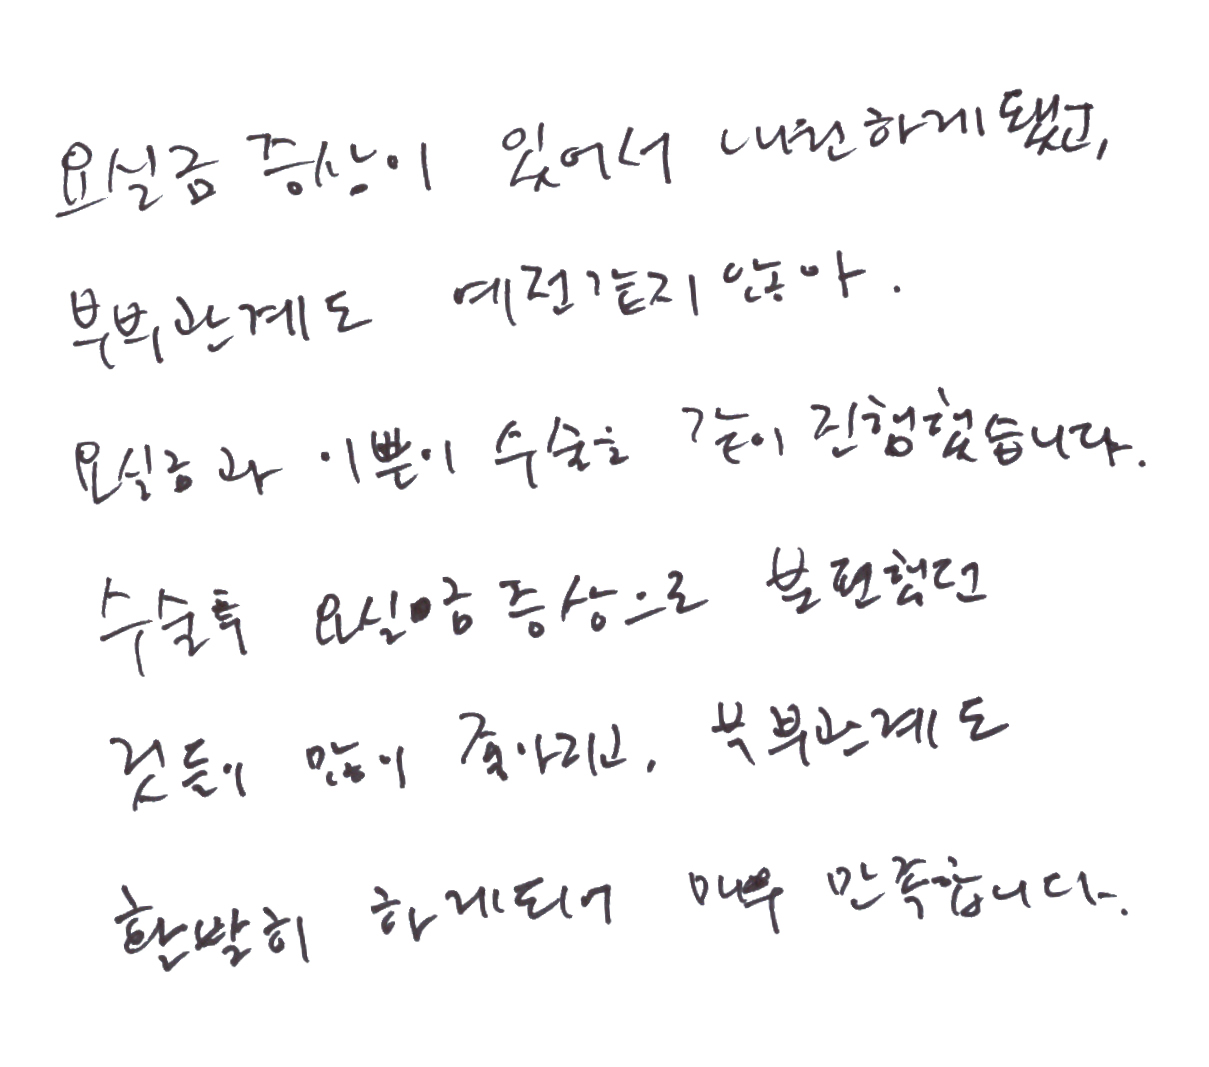 요실금 증상이 있어서 내원하게됐고,
부부관계도 예전같지 않아.
요실금과 이쁜이 수술을 같이 진행했습니다.
수술후 요실금 증상으로 불편했던
것들이 많이 좋아지고, 부부관계도
활발히 하게되어 매우 만족합니다.